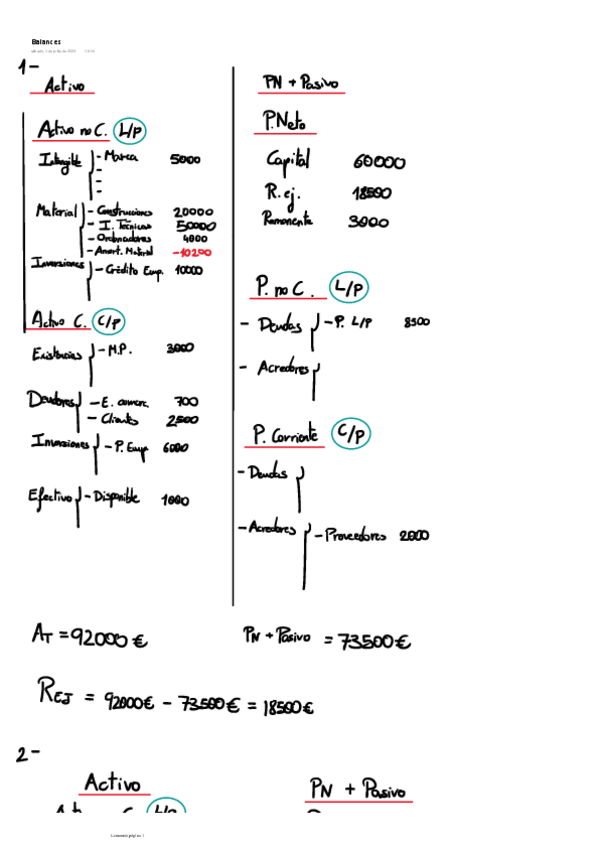 Balances
1-
Activo
Activo no C. L/P
Intangible - Marca 5000
-
-
-
Material - Construcciones 20000
- I. Técnicas 50000
- Ordenadores 4000
- Amort. Material -10200
Inversiones - Crédito Emp. 10000
Activo C. C/P
Existencias - M.P. 3000
Deudores - E. comerc. 700
- Clientes 2500
Inversiones - P. Emp 6000
Efectivo - Disponible 1000
PN + Pasivo
P.Neto
Capital 60000
R. ej. 18500
Remanente 3000
P. no C. L/P
- Deudas - P. L/P 8500
- Acredores
P. Corriente C/P
- Deudas
- Acredores - Proveedores 2000
AT = 92000 €
PN + Pasivo = 73500 €
REJ = 92000€ - 73500€ = 18500€
2-
Activo
PN + Pasivo